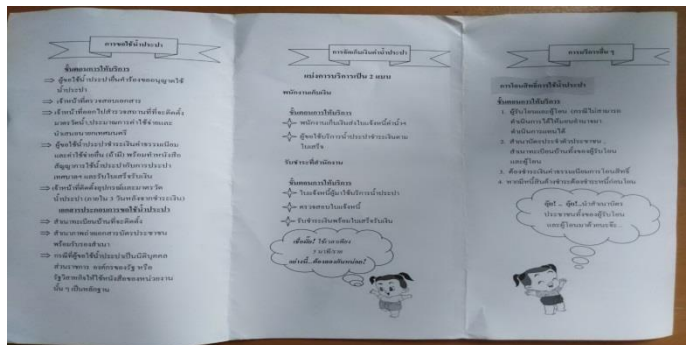 การขอใช้น้ำประปา
ขั้นตอนการให้บริการ
ผู้ขอใช้น้ำประปายื่นคำร้องขออนุญาตใช้
น้ำประปา
เจ้าหน้าที่ตรวจสอบเอกสาร
เจ้าหน้าที่ออกไปสำรวจสถานที่ที่จะติดตั้ง
มาตรวัดน้ำ,ประมาณการค่าใช้จ่ายและ
นำเสนอนายกเทศมนตรี
ผู้ขอใช้น้ำประปาชำระเงินค่าธรรมเนียม
และค่าใช้จ่ายอื่น (ถ้ามี) พร้อมทำหนังสือ
สัญญาการใช้น้ำประปากับการประปา
เทศบาลฯ และรับใบเสร็จรับเงิน
เจ้าหน้าที่ติดตั้งอุปกรณ์และมาตรวัด
น้ำประปา (ภายใน 3 วันหลังจากชำระเงิน)
เอกสารประกอบการขอใช้น้ำประปา
สำเนาทะเบียนบ้านที่จะติดตั้ง
สำเนาภาพถ่ายเอกสารบัตรประชาชน
พร้อมรับรองสำเนา
กรณีที่ผู้ขอใช้น้ำประปาเป็นนิติบุคคล
ส่วนราชการ องค์กรของรัฐ หรือ
รัฐวิสาหกิจให้ใช้หนังสือของหน่วยงาน
นั้น ๆ เป็นหลักฐาน
การจัดเก็บเงินค่าน้ำประปา
แบ่งการบริการเป็น 2 แบบ
พนักงานเก็บเงิน
ขั้นตอนการให้บริการ
พนักงานเก็บเงินส่งใบแจ้งหนี้ค่าน้ำฯ
ผู้ขอใช้บริการน้ำประปาชำระเงินตาม
ใบเสร็จ
รับชำระที่สำนักงาน
ขั้นตอนการให้บริการ
ใบแจ้งหนี้ผู้มาใช้บริการน้ำประปา
ตรวจสอบใบแจ้งหนี้
รับชำระเงินพร้อมใบเสร็จรับเงิน
ใช้เวลาเพียง
5 นาที/ราย
อย่างนี้...ต้องลองกันหน่อย!
การบริการอื่น ๆ
การโอนสิทธิ์การใช้น้ำประปา
ขั้นตอนการให้บริการ
1. ผู้รับโอนและผู้โอน กรณีไม่สามารถ
ดำเนินการได้ให้มอบอำนาจมา
ดำเนินการแทนได้
2. สำเนาบัตรประจำตัวประชาชน ,
สำเนาทะเบียนบ้านทั้งของผู้รับโอน
และผู้โอน
3. ต้องชำระเงินค่าธรรมเนียมการโอนสิทธิ์
4. หากมีหนี้สินค้างชำระต้องชำระหนี้ก่อนโอน
นำสำเนาบัตร
ประชาชนทั้งของผู้รับโอน
และผู้โอนมาด้วยนะจ๊ะ...